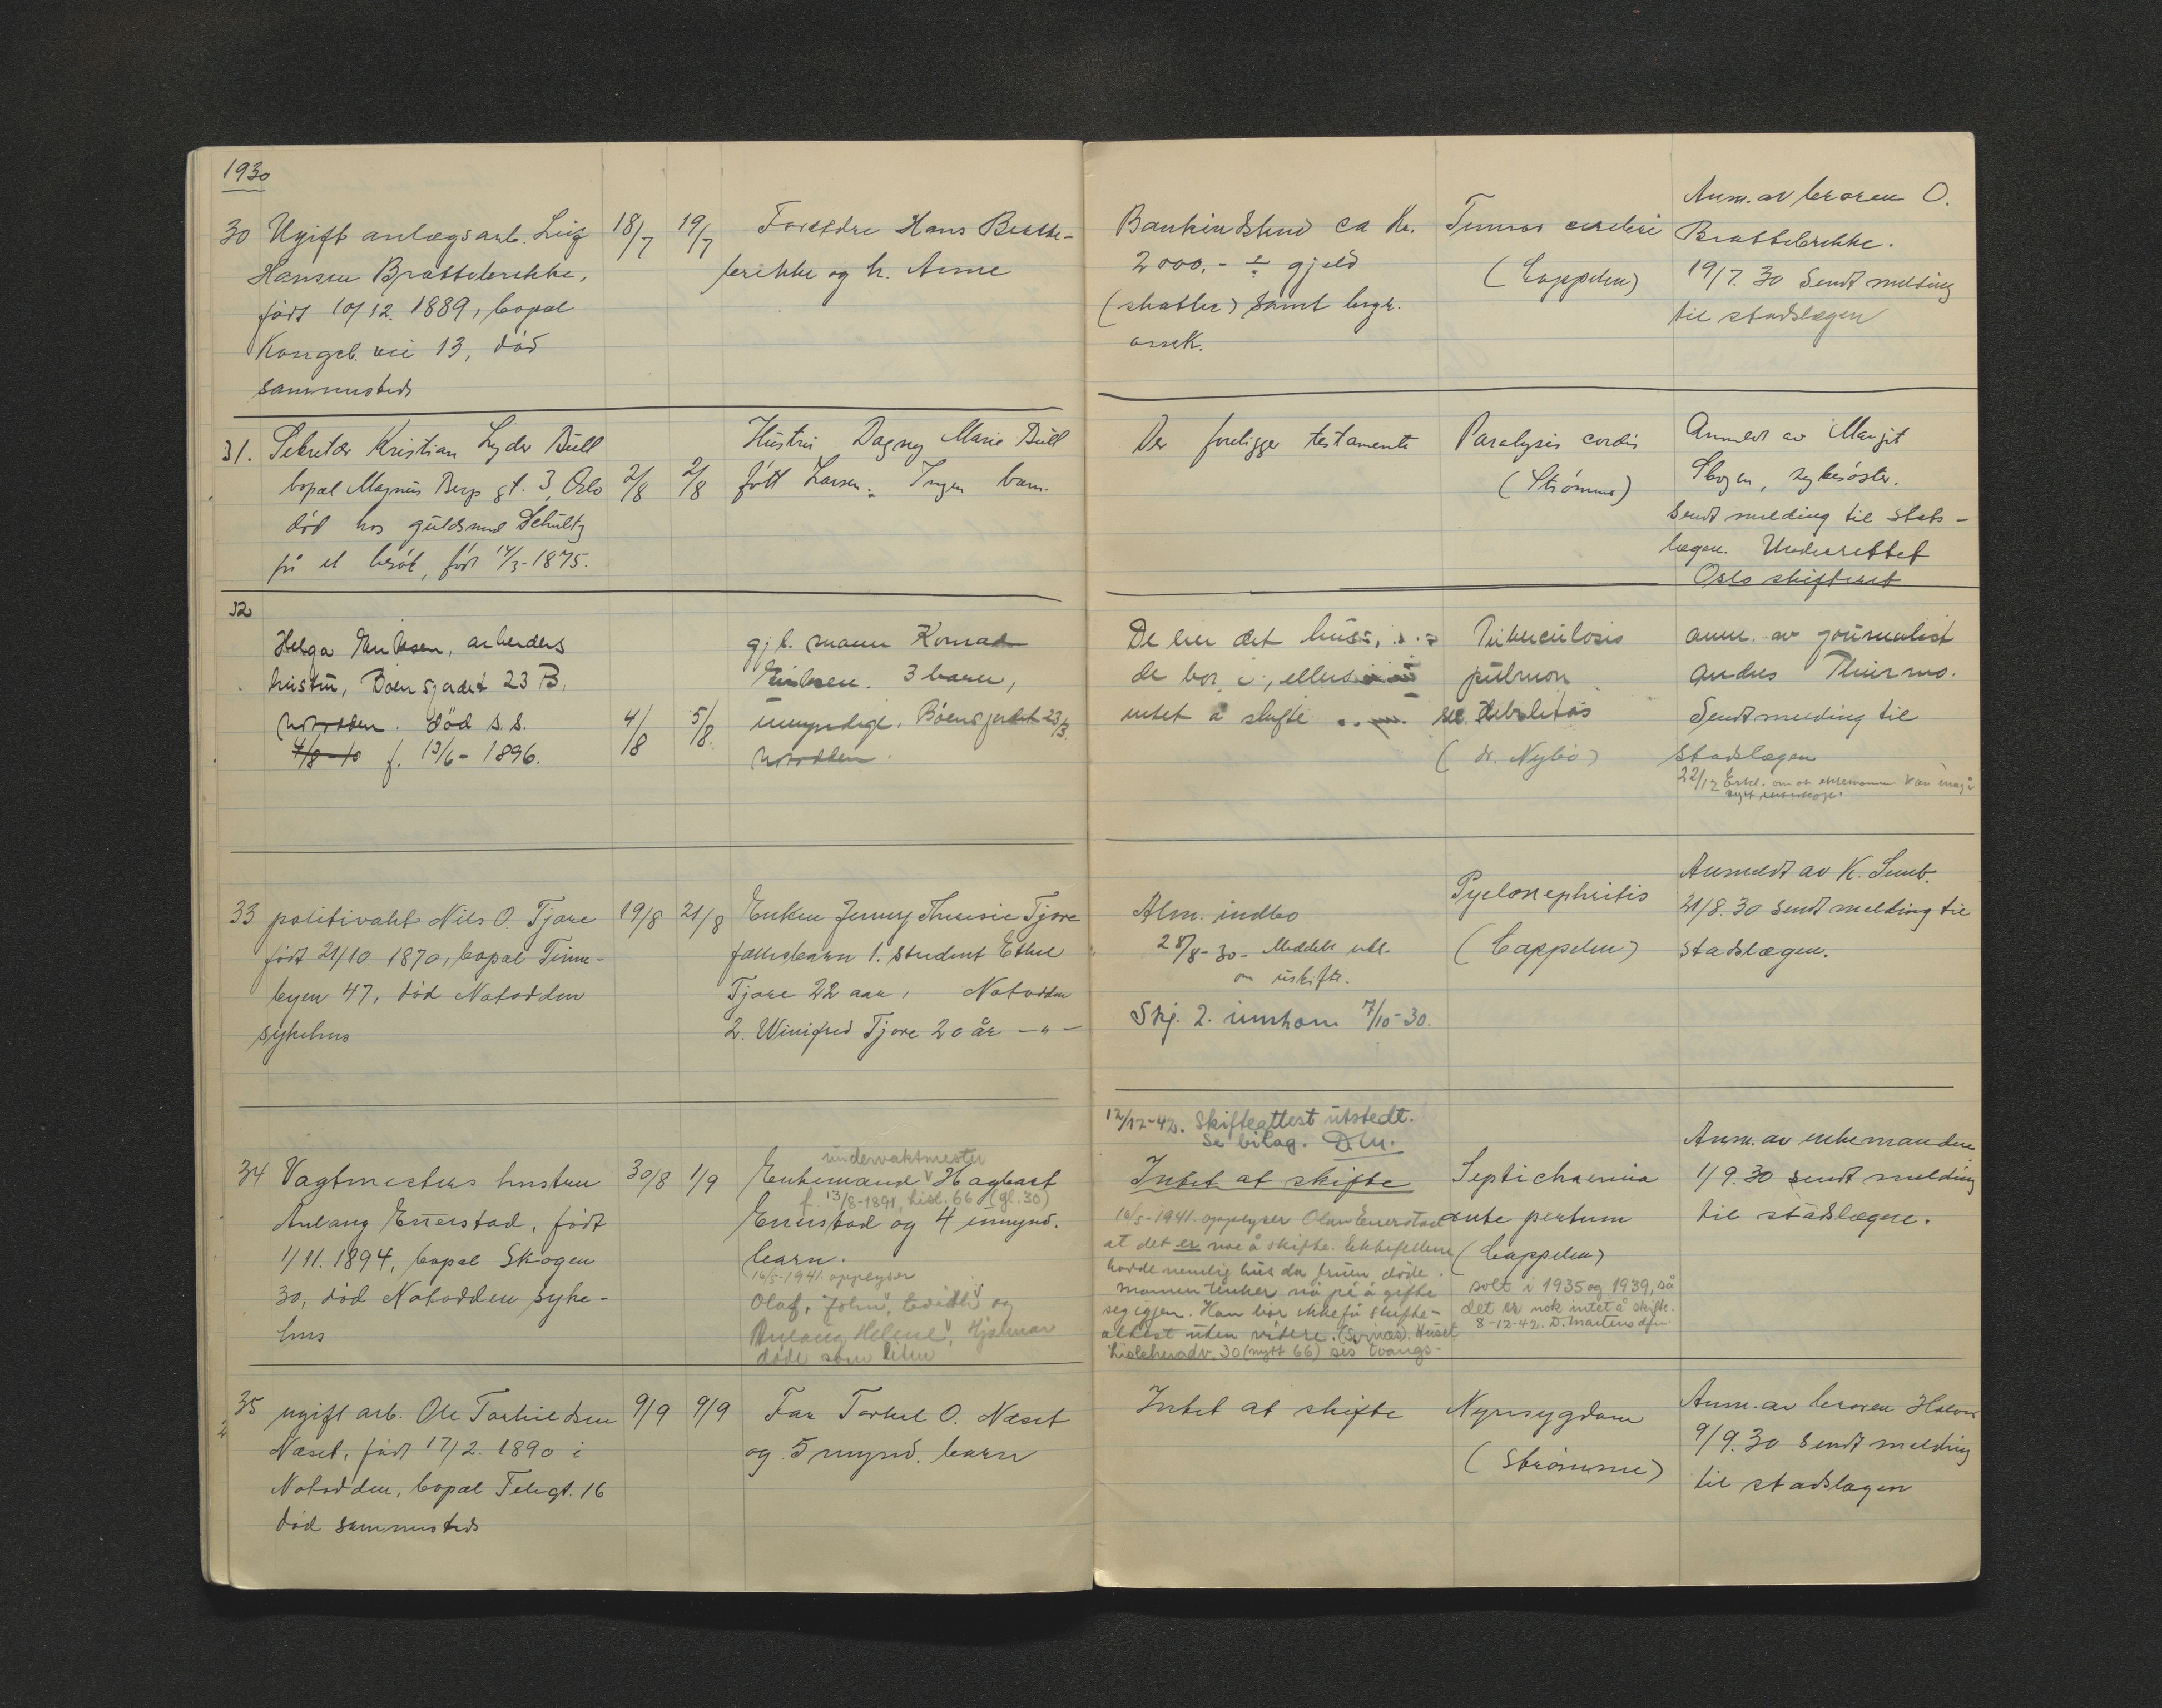 1930
30 Ugift anlægsarb. Leif 18/7 19/7 Forældre Hans Bratte-
Hansen Brattebrekke, brekke og h. Anne
født 10/12. 1889, bopæl
Kongeb. vei 13, død
sammesteds
Bankindskud ca Kr. Tumor cerebri Anm. av broren O.
2000,- ÷ gjeld (Cappelen) Brattebrekke.
(skatter) samt begr. 19/7. 30 Sendt melding
assek. til stadslægen
31. Sekretær Kristian Lyder Bull 2/8 2/8 Hustru Dagny Marie Bull
bopæl Magnus Bergs gt. 3, Oslo født Larsen. Ingen barn.
død hos guldsmed Schultz
på et besøk, født 14/3-1875.
Der foreligger testamente Paralysis cordis Anmeldt av Margit
(Strømme) Skogen, sykesøster.
Sendt melding til stads-
lægen. Underrettet
Oslo skifteret
32
Helga Eriksen, arbeiders 4/8 5/8 gjl. mann Konrad
hustru, Böensgardet 23 B, Eriksen. 3 barn,
Notodden. död s.s. umyndige. Böensgardet 23 B
4/8-10 f. 13/6-1896. Notodden.
De eier det hus, Tuberculosis anm. av journalist
de bor i, ellers pulmon Andres Thurmo.
intet å skifte debilitas Sendt melding til
(dr. Nybö) stadslægen
22/12 Erkl. om at ektemannen kan inngå
nytt ekteskap.
33 politivakt Nils O. Tjore 19/8 21/8 Enken Jenny Theresie Tjore
født 21/10. 1870, bopæl Tinne- fellesbarn 1. student Ethel
byen 47, død Notodden Tjore 22 aar, Notodden
sykehus 2. Winifred Tjore 20 år —"—
Alm. indbo Pyelonephritis Anmeldt av K. Semb.
28/8-30- Meddelt erkl. (Cappelen) 21/8. 30 sendt melding til
om uskifte. stadslægen.
Skj. 2. innkom 7/10-30.
34 Vagtmesters hustru 30/8 1/9 Enkemand undervaktmester Hagbart
f. 13/8-1891, Lisl. 66 (gl. 30)
Anlaug Enerstad, født Enerstad og 4 umynd.
1/11. 1894, bopæl Skogen barn.
30, død Notodden syke- 16/5-1941 opplyser
hus Olaf, John, Edith og
Anlaug Helene, Hjalmar
døde som liten
12/12-42. Skifteattest utstedt.
Se bilag. D.M.
Intet at skifte Septichaemia Anm. av enkemanden
16/5-1941 opplyser Olav Enerstad ante partum 1/9. 30 sendt melding
at det er noe å skifte. Ektefellene (Cappelen) til stadslægen.
hadde nemlig hus da fruen døde.
Mannen tenker nå på å gifte
seg igjen. Han bör ikke få skifte-
attest uten videre. (Svinæs). Huset
Lisleheradv. 30 (nytt 66) ses tvangs-
solt i 1935 og 1939, så
det er nok intet å skifte.
8-12-42. D. Martens dfm.
35 ugift arb. Ole Torkildsen 9/9 9/9 Far Torkel O. Næset
Næset, født 17/2. 1890 i og 5 mynd. barn
Notodden, bopæl Telegt. 16
død sammesteds
Intet at skifte Nyresygdom Anm. av broren Halvor
(Strømme) 9/9. 30 Sendt melding
til stadslægen